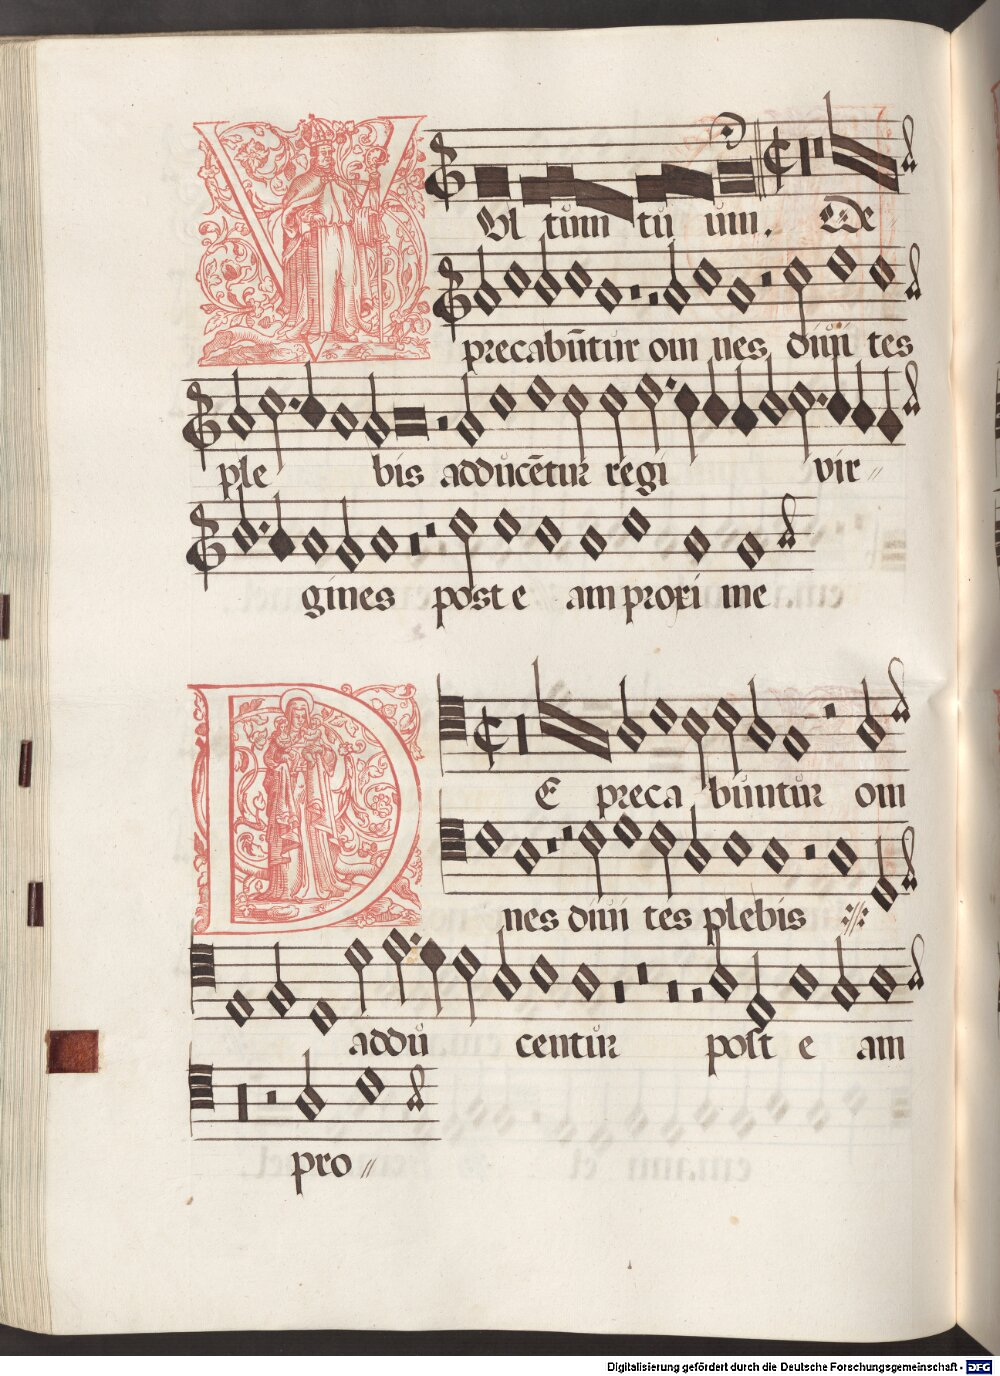 V Vl tum tu um. De
precabūntur om nes diui tes
ple bis adducētur regi vir
gines post e am proxi me
D E preca buntur om
nes diui tes plebis
addu centur post e am
pro
Digitalisierung gefördert durch die Deutsche Forschungsgemeinschaft - DFG